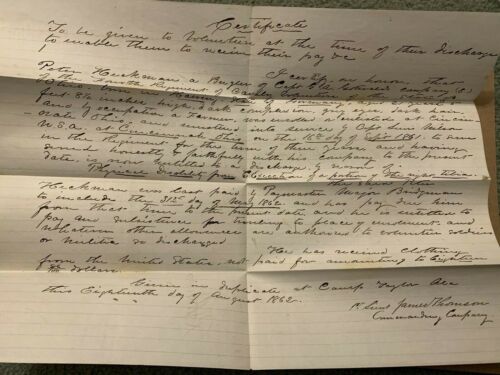 Certificate
To be given to Volunteers at the time of their Discharge
to enable them to receive their pay &c
I certify, on honor, that
Peter Heckman a Bugler of Capt company (C)
Regiment of Cavalry Volunteers of the
born in Germany, aged
feet 8¾ inches high, dark complexion, eyes
and by occupation a Farmer, was enrolled at Cincin-
nati Ohio, and mustered into service by Capt
U.S.A. at Cincinnati Ohio on the to serve
in the Regiment for the term of three years and having
served honestly & faithfully with his company to the present
date, is now entitled to a discharge by reason of
Physical Disability from of a portion of the right tibia.
The said Peter
Heckman was last paid by Paymaster Major
to include the 31st day of May 1862 and has pay due him
from that time to the present date and he is entitled to
pay and subsistence for traveling to place of enrolment and
whatever other allowances are authorized to volunteer soldiers
or militia so discharged
He has received clothing
from the United States, not paid for amounting to Eighteen
dollars.
Given in duplicate at Camp Taylor Ala
this Eighteenth day of August 1862.
1st Lieut James Thomson
Commanding Company